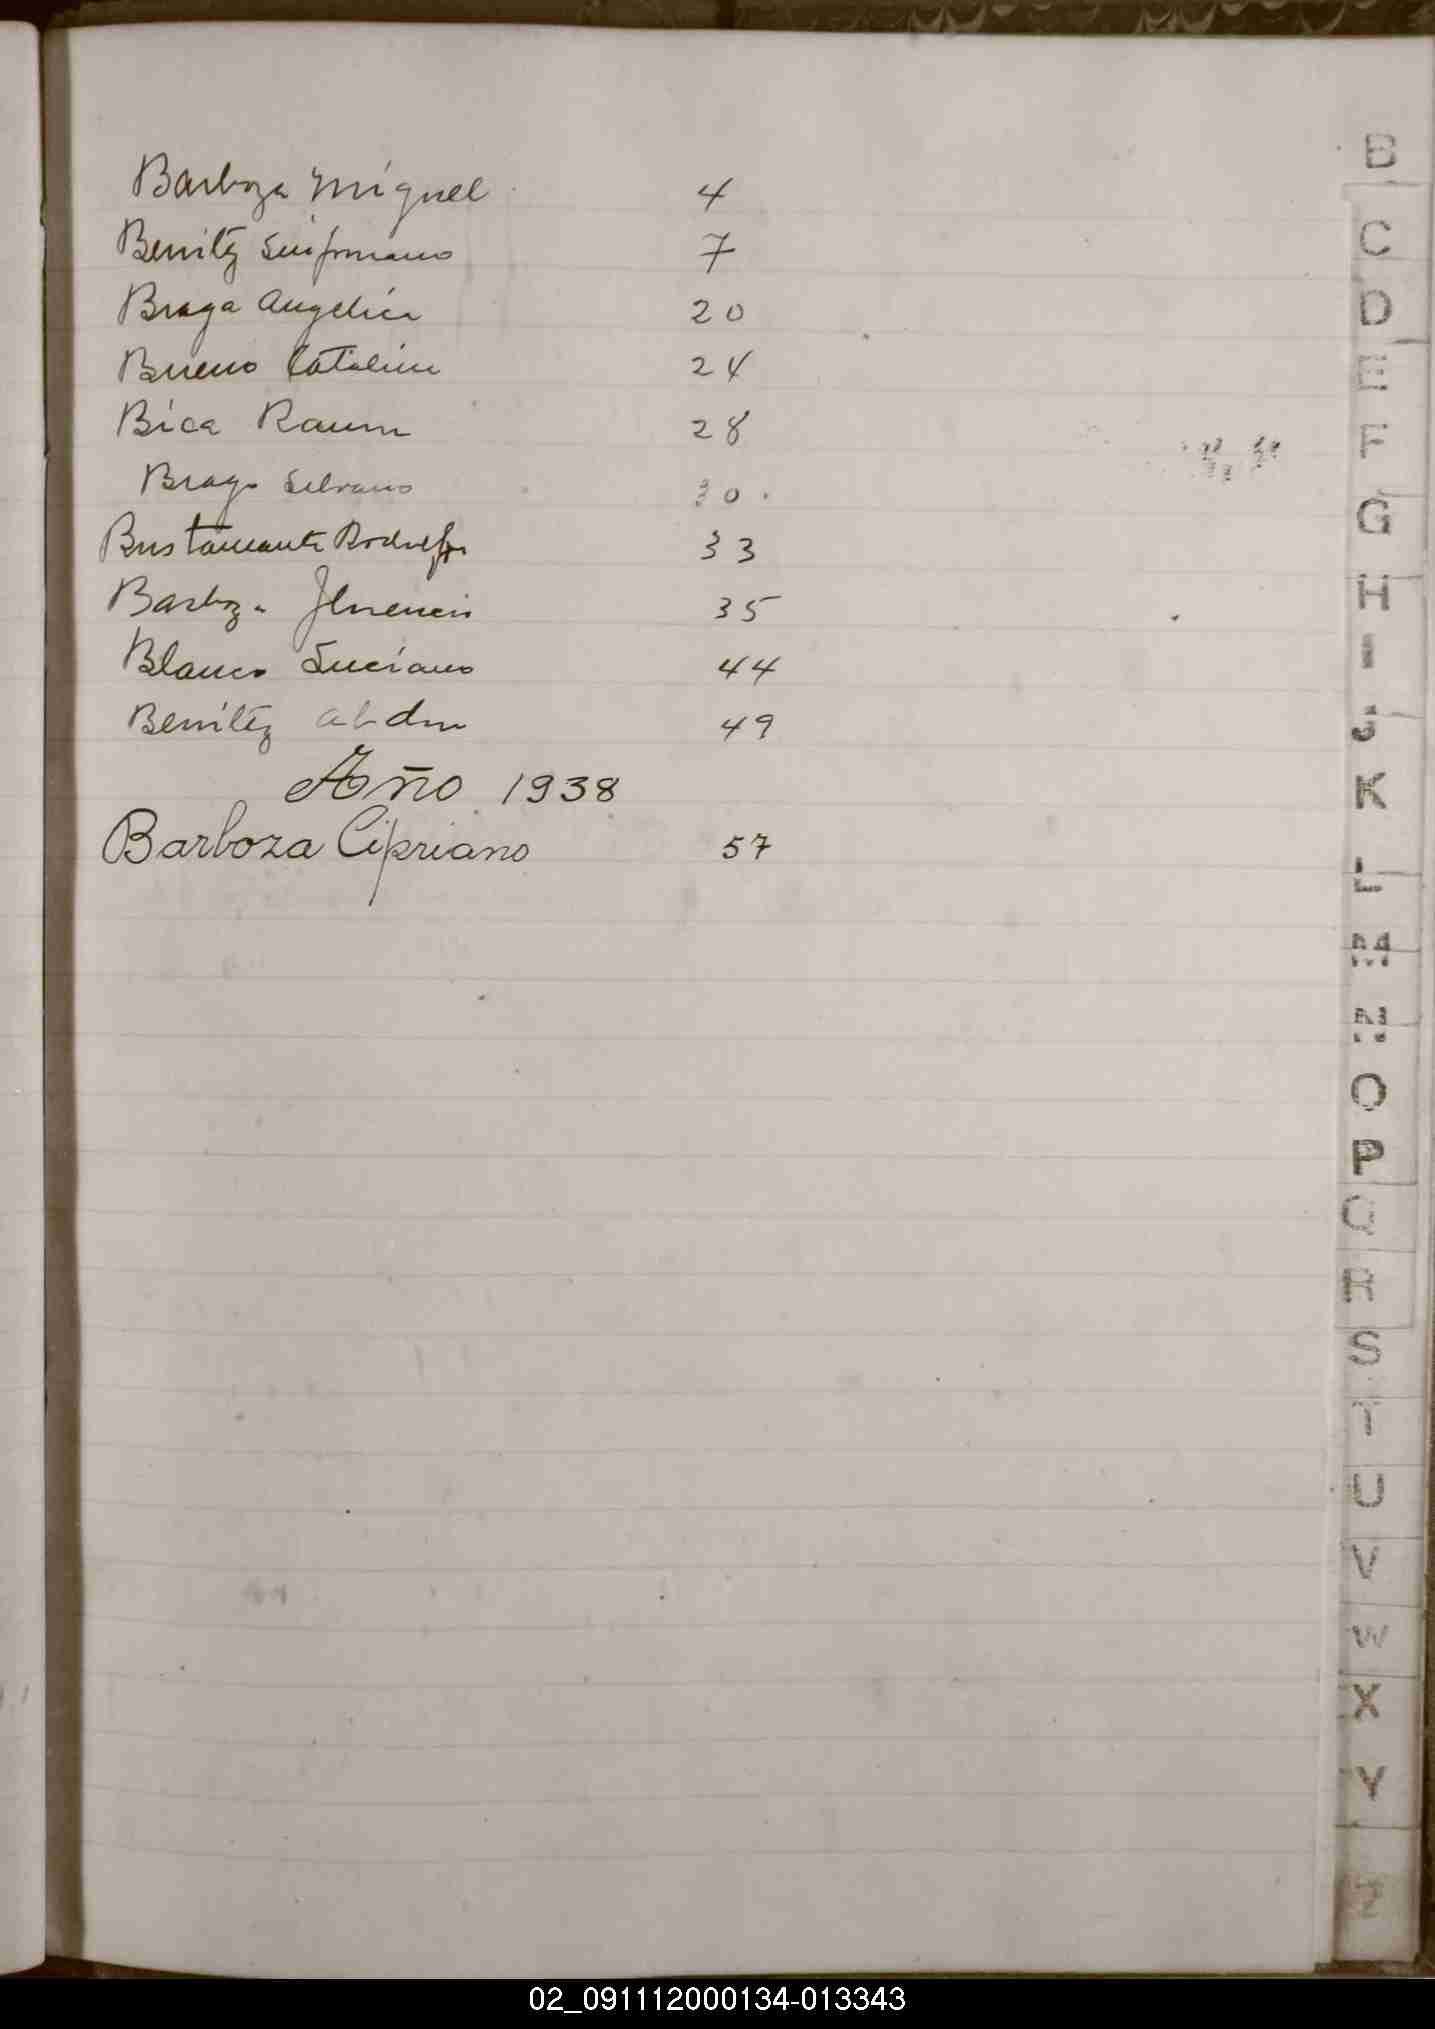 Barboza Miguel 4
Benitez Sinforiano 7
Braga Angelica 20
Bueno Catalina 24
Bica Ramon 28
Braga Silvano 30
Bustamante Rodolfo 33
Barboza Florencio 35
Blanco Luciano 44
Benitez Abdon 49
Año 1938
Barboza Cipriano 57
B
C
D
E
F
G
H
I
J
K
L
M
N
O
P
Q
R
S
T
U
V
W
X
Y
Z
02_091112000134-013343